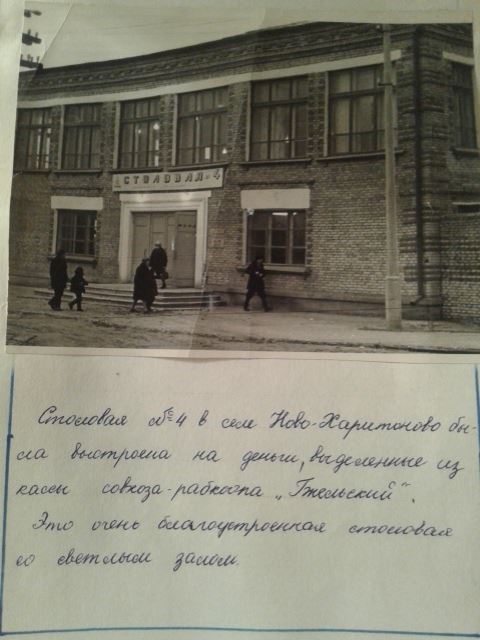 СТОЛОВАЯ №4
Столовая №4 в селе Ново-Харитоново бы-
ла выстроена на деньги, выделенные из
кассы совхоза-рабкоопа „Гжельский“.
Это очень благоустроенная столовая
со светлым залом.